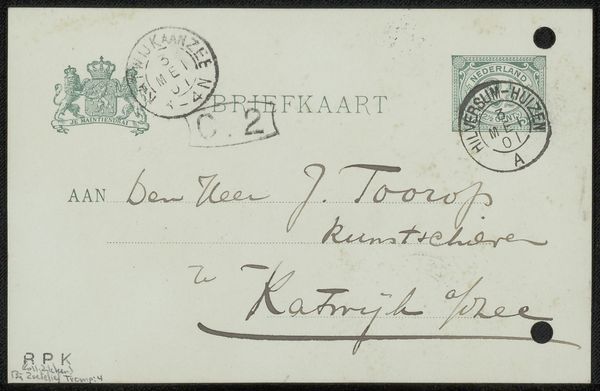 KATWIJK AAN ZEE
3 MEI 01
N 4
JE MAINTIENDRAI
BRIEFKAART
C. 2
NEDERLAND
HILVERSUM-HUIZEN
3 MEI 01
A
AAN Den Heer J. Toorop
Kunstschilder
te
Katwijk a/zee
R P K
Tromp: 4